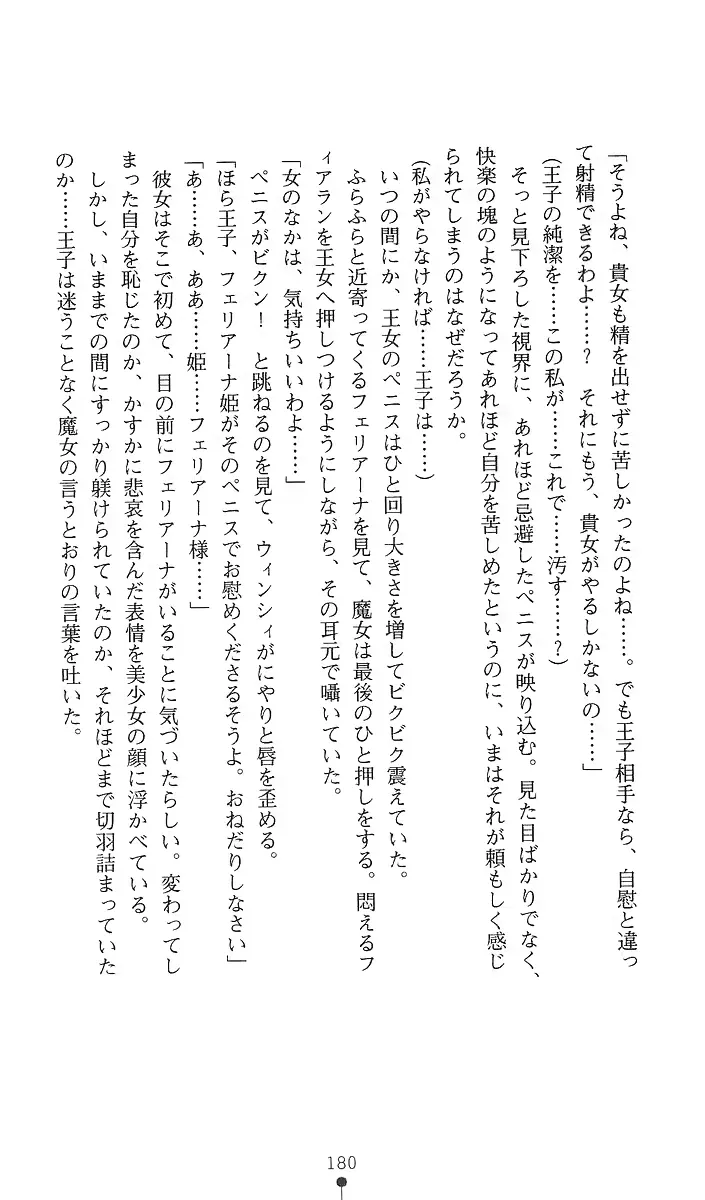 「そうよね、貴女も精を出せずに苦しかったのよね……。でも王子相手なら、自慰と違っ
て射精できるわよ……？　それにもう、貴女がやるしかないの……」
(王子の純潔を……この私が……これで……汚す……？)
そっと見下ろした視界に、あれほど忌避したペニスが映り込む。見た目ばかりでなく、
快楽の塊のようになってあれほど自分を苦しめたというのに、いまはそれが頼もしく感じ
られてしまうのはなぜだろうか。
(私がやらなければ……王子は……)
いつの間にか、王女のペニスはひと回り大きさを増してビクビク震えていた。
ふらふらと近寄ってくるフェリアーナを見て、魔女は最後のひと押しをする。悶えるフ
ィアランを王女へ押しつけるようにしながら、その耳元で囁いていた。
「女のなかは、気持ちいいわよ……」
ペニスがビクン！　と跳ねるのを見て、ウィンシィがにやりと唇を歪める。
「ほら王子、フェリアーナ姫がそのペニスでお慰めくださるそうよ。おねだりしなさい」
「あ……あ、ああ……姫……フェリアーナ様……」
彼女はそこで初めて、目の前にフェリアーナがいることに気づいたらしい。変わってし
まった自分を恥じたのか、かすかに悲哀を含んだ表情を美少女の顔に浮かべている。
しかし、いままでの間にすっかり躾けられていたのか、それほどまで切羽詰まっていた
のか……王子は迷うことなく魔女の言うとおりの言葉を吐いた。
180